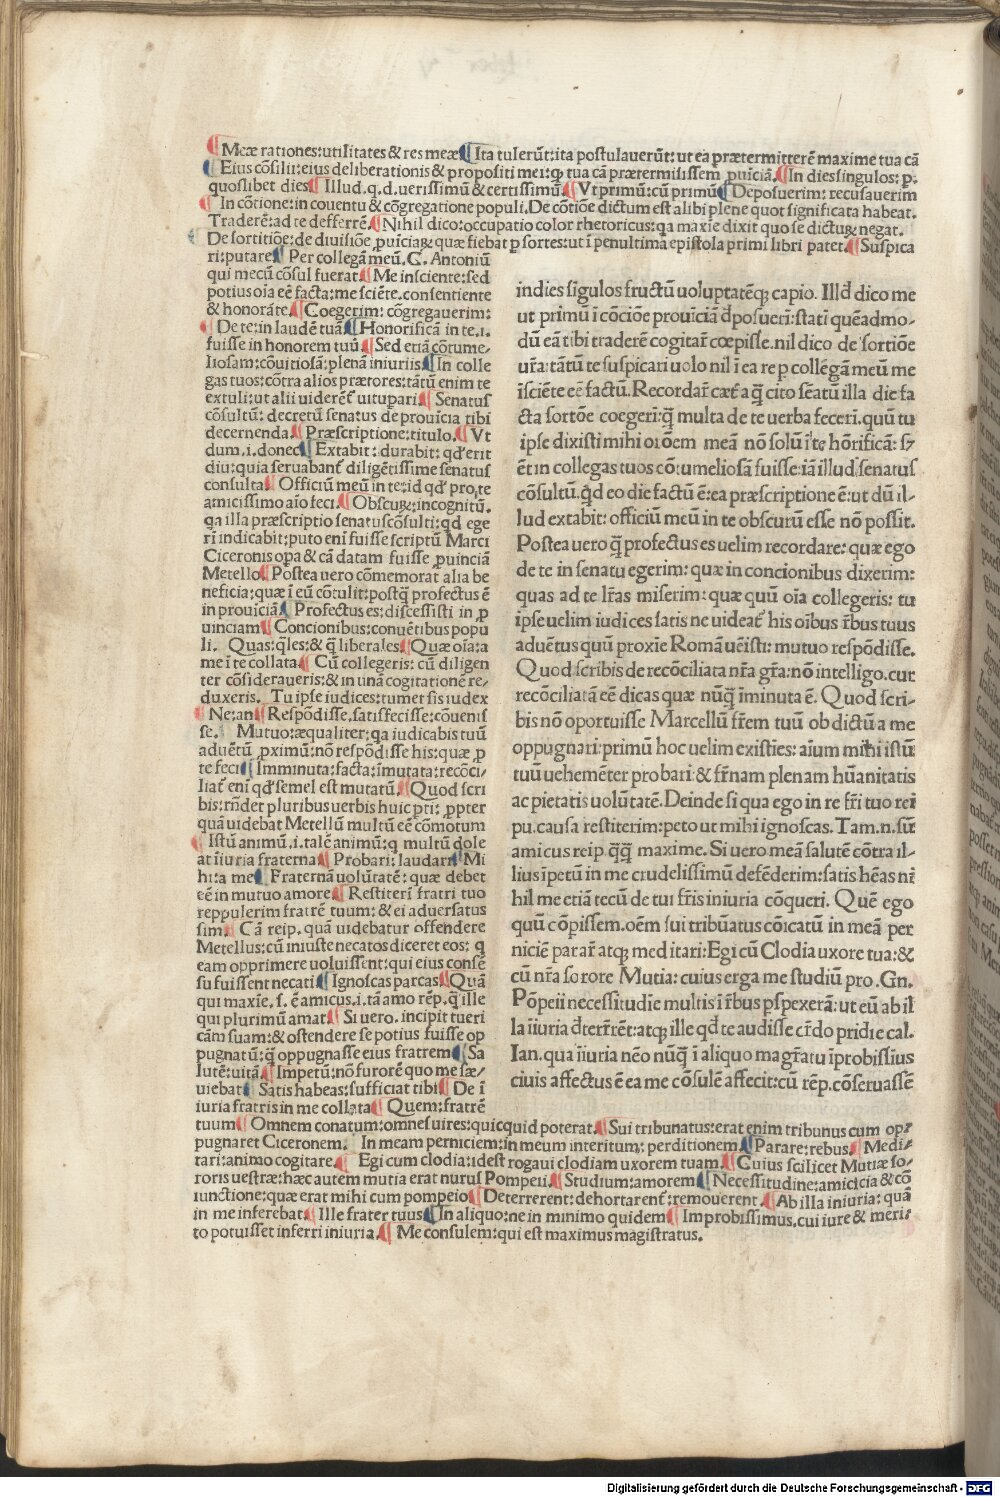 Meæ rationes:utilitates & res meæ Ita tulerūt:ita postulauerūt: ut ea prætermitterē maxime tua cā
Eius cōsilii:eius deliberationis & propositi mei:ꝙ tua cā prætermisissem ꝓuīciā. In dies singulos: p.
quoslibet dies Illud.q.d.uerissimū & certissimū. Vt primū: cū primū Deposuerim: recusauerim
In cōtione:in couentu & cōgregatione populi.De cōtiōe dictum est alibi plene quot significata habeat.
Traderē:ad te defferrē. Nihil dico:occupatio color rhetoricus:qa maxīe dixit quo se dictuꝝ negat.
De sortitiōe:de diuisiōe ꝓuīciaꝝ quæ fiebat p sortes:ut ī penultima epistola primi libri patet. Suspica
ri:putare Per collegā meū.C. Antoniū
qui mecū cōsul fuerat Me insciente:sed
potius oīa eē facta:me sciēte.consentiente
& honorāte. Coegerim: cōgregauerim:
De te:in laudē tuā Honorificā in te.i.
fuisse in honorem tuū. Sed etiā cōtume-
liosam:cōuitiosā:plenā iniuriis In colle
gas tuos:cōtra alios prætores:tātū enim te
extuli:ut alii uiderēt uitupari Senatus
cōsultū: decretū senatus de prouīcia tibi
decernenda Præscriptione:titulo. Vt
dum.i.donec Extabit:durabit: qd erit
diu:quia seruabant diligētissime senatus
consulta Officiū meū in te:id qd pro te
amicissimo aīo feci. Obscuꝝ:incognitū.
qa illa præscriptio senatuscōsulti:qd ege
rī indicabit:puto eni fuisse scriptū Marci
Ciceronis opa & cā datam fuisse ꝓuinciā
Metello Postea uero cōmemorat alia be
neficia:quæ ī eū cōtulit:postq̄ profectus ē
in prouiciā Profectus es:discessisti in ꝓ
uinciam Concionibus:conuētibus popu
li. Quas:q̄les:& q̄ liberales Quæ oīa:a
me ī te collata Cū collegeris: cū diligen
ter cōsideraueris:& in unā cogitationē re-
duxeris. Tu ipse iudices:tumet sis iudex
Ne:an Respōdisse.satisfecisse:cōuenis
se. Mutuo:æqualiter:qa iudicabis tuū
aduētū ꝓximū:nō respōdisse his:quæ ꝓ
te feci Imminuta:facta:īmutata:recōci-
liat eni qd semel est mutatū. Quod scri
bis:rn̄det pluribus uerbis huic pti: ꝓpter
quā uidebat Metellū multū eē cōmotum
Istū animū.i.talē animū:ꝙ multū dole
at iīuria fraterna Probari:laudari Mi
hi:a me Fraternā uolūtatē: quæ debet
eē in mutuo amore Restiterī fratri tuo
reppulerim fratrē tuum: & ei aduersatus
sim Cā reip. quā uidebatur offendere
Metellus:cū iniuste necatos diceret eos: q
eam opprimere uoluissent:qui eius consē
su fuissent necati Ignoscas parcas Quā
qui maxie. s. ē amicus.i.tā amo rēp.q̄ ille
qui plurimū amat Si uero.incipit tueri
cām suam:& ostendere se potius fuisse op
pugnatū:q̄ oppugnasse eius fratrem Sa
lutē:uitā Impetū:nō furorē quo me sæ-
uiebat Satis habeas:sufficiat tibi De ī
iuria fratris in me collata Quem:fratrē
tuum Omnem conatum:omnes uires:quicquid poterat. Sui tribunatus:erat enim tribunus cum op-
pugnaret Ciceronem. In meam perniciem:in meum interitum: perditionem Parare:rebus. Medi-
tari:animo cogitare. Egi cum clodia:idest rogaui clodiam uxorem tuam. Cuius scilicet Mutiæ so-
roris uestræ:hæc autem mutia erat nurus Pompeii. Studium:amorem Necessitudine:amicicia & cō
iunctione:quæ erat mihi cum pompeio Deterrerent:dehortarent:remouerent. Ab illa iniuria: quā
in me inferebat Ille frater tuus In aliquo:ne in minimo quidem Improbissimus.cui iure & meri-
to potuisset inferri iniuria. Me consulem:qui est maximus magistratus.
indies sigulos fructū uoluptatēq; capio. Illd dico me
ut primū ī cōciōe prouīciā dposueri:stati quēadmo-
dū eā tibi traderē cogitar cœpisse.nil dico de sortiōe
ura:tātū te suspicari uolo nil ī ea re p collegā meū me
īsciēte eē factū. Recordar cæta q̄ cito sēatū illa die fa
cta sortōe coegeri:q̄ multa de te uerba feceri.quū tu
ipse dixisti mihi oiōem meā nō solū ī te hōrificā: s3
ēt in collegas tuos cōtumeliosā fuisse:iā illud senatus
cōsultū.qd eo die factū ē:ea præscriptione ē:ut dū il-
lud extabit: officiū meū in te obscurū esse nō possit.
Postea uero q̄ profectus es uelim recordare: quæ ego
de te in senatu egerim: quæ in concionibus dixerim:
quas ad te lras miserim: quæ quū oīa collegeris: tu
ipse uelim iudices satis ne uideat his oībus rbus tuus
aduētus quū proxie Romā uēisti: mutuo respōdisse.
Quod scribis de recōciliata nra gra:nō intelligo.cur
recōciliatā eē dicas quæ nūq̄ īminuta ē. Quod scri-
bis nō oportuisse Marcellū frem tuū ob dictū a me
oppugnari:primū hoc uelim existies: aīum mihi istū
tuū uehemēter probari & frnam plenam hūanitatis
ac pietatis uolūtatē.Deinde si qua ego in re fri tuo rei
pu.causa restiterim:peto ut mihi ignoscas. Tam.n.sū
amicus reip.q̄q̄ maxime. Si uero meā salutē cōtra il-
lius īpetū in me crudelissimū defēderim:satis hēas ni
hil me etiā tecū de tui fris iniuria cōqueri. Quē ego
quū cōpissem.oēm sui tribūatus cōicatū in meā per
niciē parar atq; meditari: Egi cū Clodia uxore tua:&
cū nra sorore Mutia: cuius erga me studiū pro .Gn.
Pōpeii necessitudie multis ī rbus pspexerā: ut eū ab il
la iiuria dterrret: atq; ille qd te audisse crdo pridie cal.
Ian.qua iiuria nēo nūq̄ ī aliquo magratu īprobissius
ciuis affectus ē ea me cōsulē affecit:cū rēp.cōseruassē
Digitalisierung gefördert durch die Deutsche Forschungsgemeinschaft - DFG